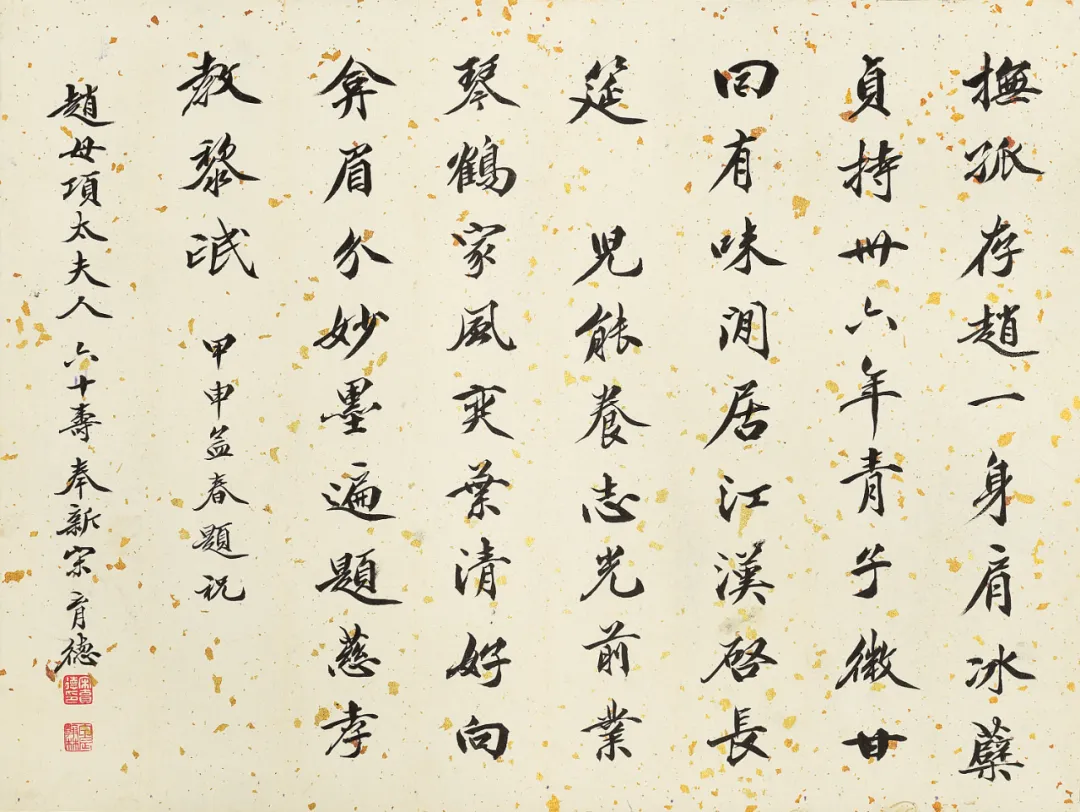 撫孤存趙一身肩冰蘗
貞持卅六年青子徵甘
回有味閒居江漢啓長
筵 兒能養志光前業
琴鶴家風奕葉清好向
弇眉分妙墨遍題慈孝
教黎氓 甲申孟春題祝
趙母項太夫人 六十壽 奉新宋育德